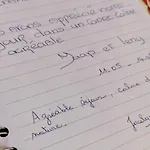 avons apprécié notre
jour dans un cadre
agréable
Jaap et
11.05 -
Agréable séjour, calme
nature.